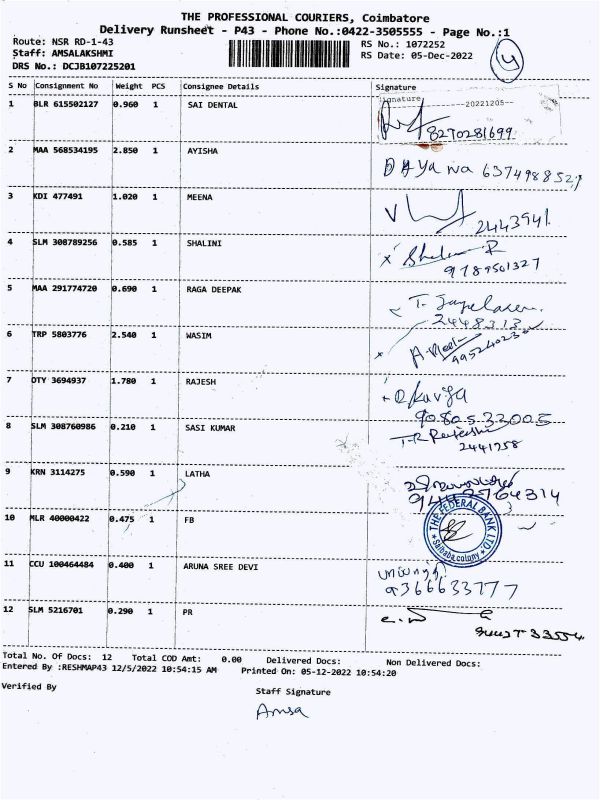 THE PROFESSIONAL COURIERS, Coimbatore
Delivery Runsheet - P43 - Phone No.:0422-3505555 - Page No.:1
Route: NSR RD-1-43 RS No.: 1072252
Staff: AMSALAKSHMI RS Date: 05-Dec-2022
DRS No.: DCJB107225201
S No Consignment No Weight PCS Consignee Details Signature
1 BLR 615502127 0.960 1 SAI DENTAL
Signature 20221205
8270281699
2 MAA 568534195 2.850 1 AYISHA
3 KDI 477491 1.020 1 MEENA
2443941
4 SLM 308789256 0.585 1 SHALINI
9789501327
5 MAA 291774720 0.690 1 RAGA DEEPAK
2448313
6 TRP 5803776 2.540 1 WASIM
7 OTY 3694937 1.780 1 RAJESH
9080533005
8 SLM 308760986 0.210 1 SASI KUMAR
2441758
9 KRN 3114275 0.590 1 LATHA
10 MLR 40000422 0.475 1 FB
THE FEDERAL BANK LTD
Saibaba colony
11 CCU 100464484 0.400 1 ARUNA SREE DEVI
9366633777
12 SLM 5216701 0.290 1 PR
Total No. Of Docs: 12 Total COD Amt: 0.00 Delivered Docs: Non Delivered Docs:
Entered By :RESHMAP43 12/5/2022 10:54:15 AM Printed On: 05-12-2022 10:54:20
Verified By Staff Signature
Amsa